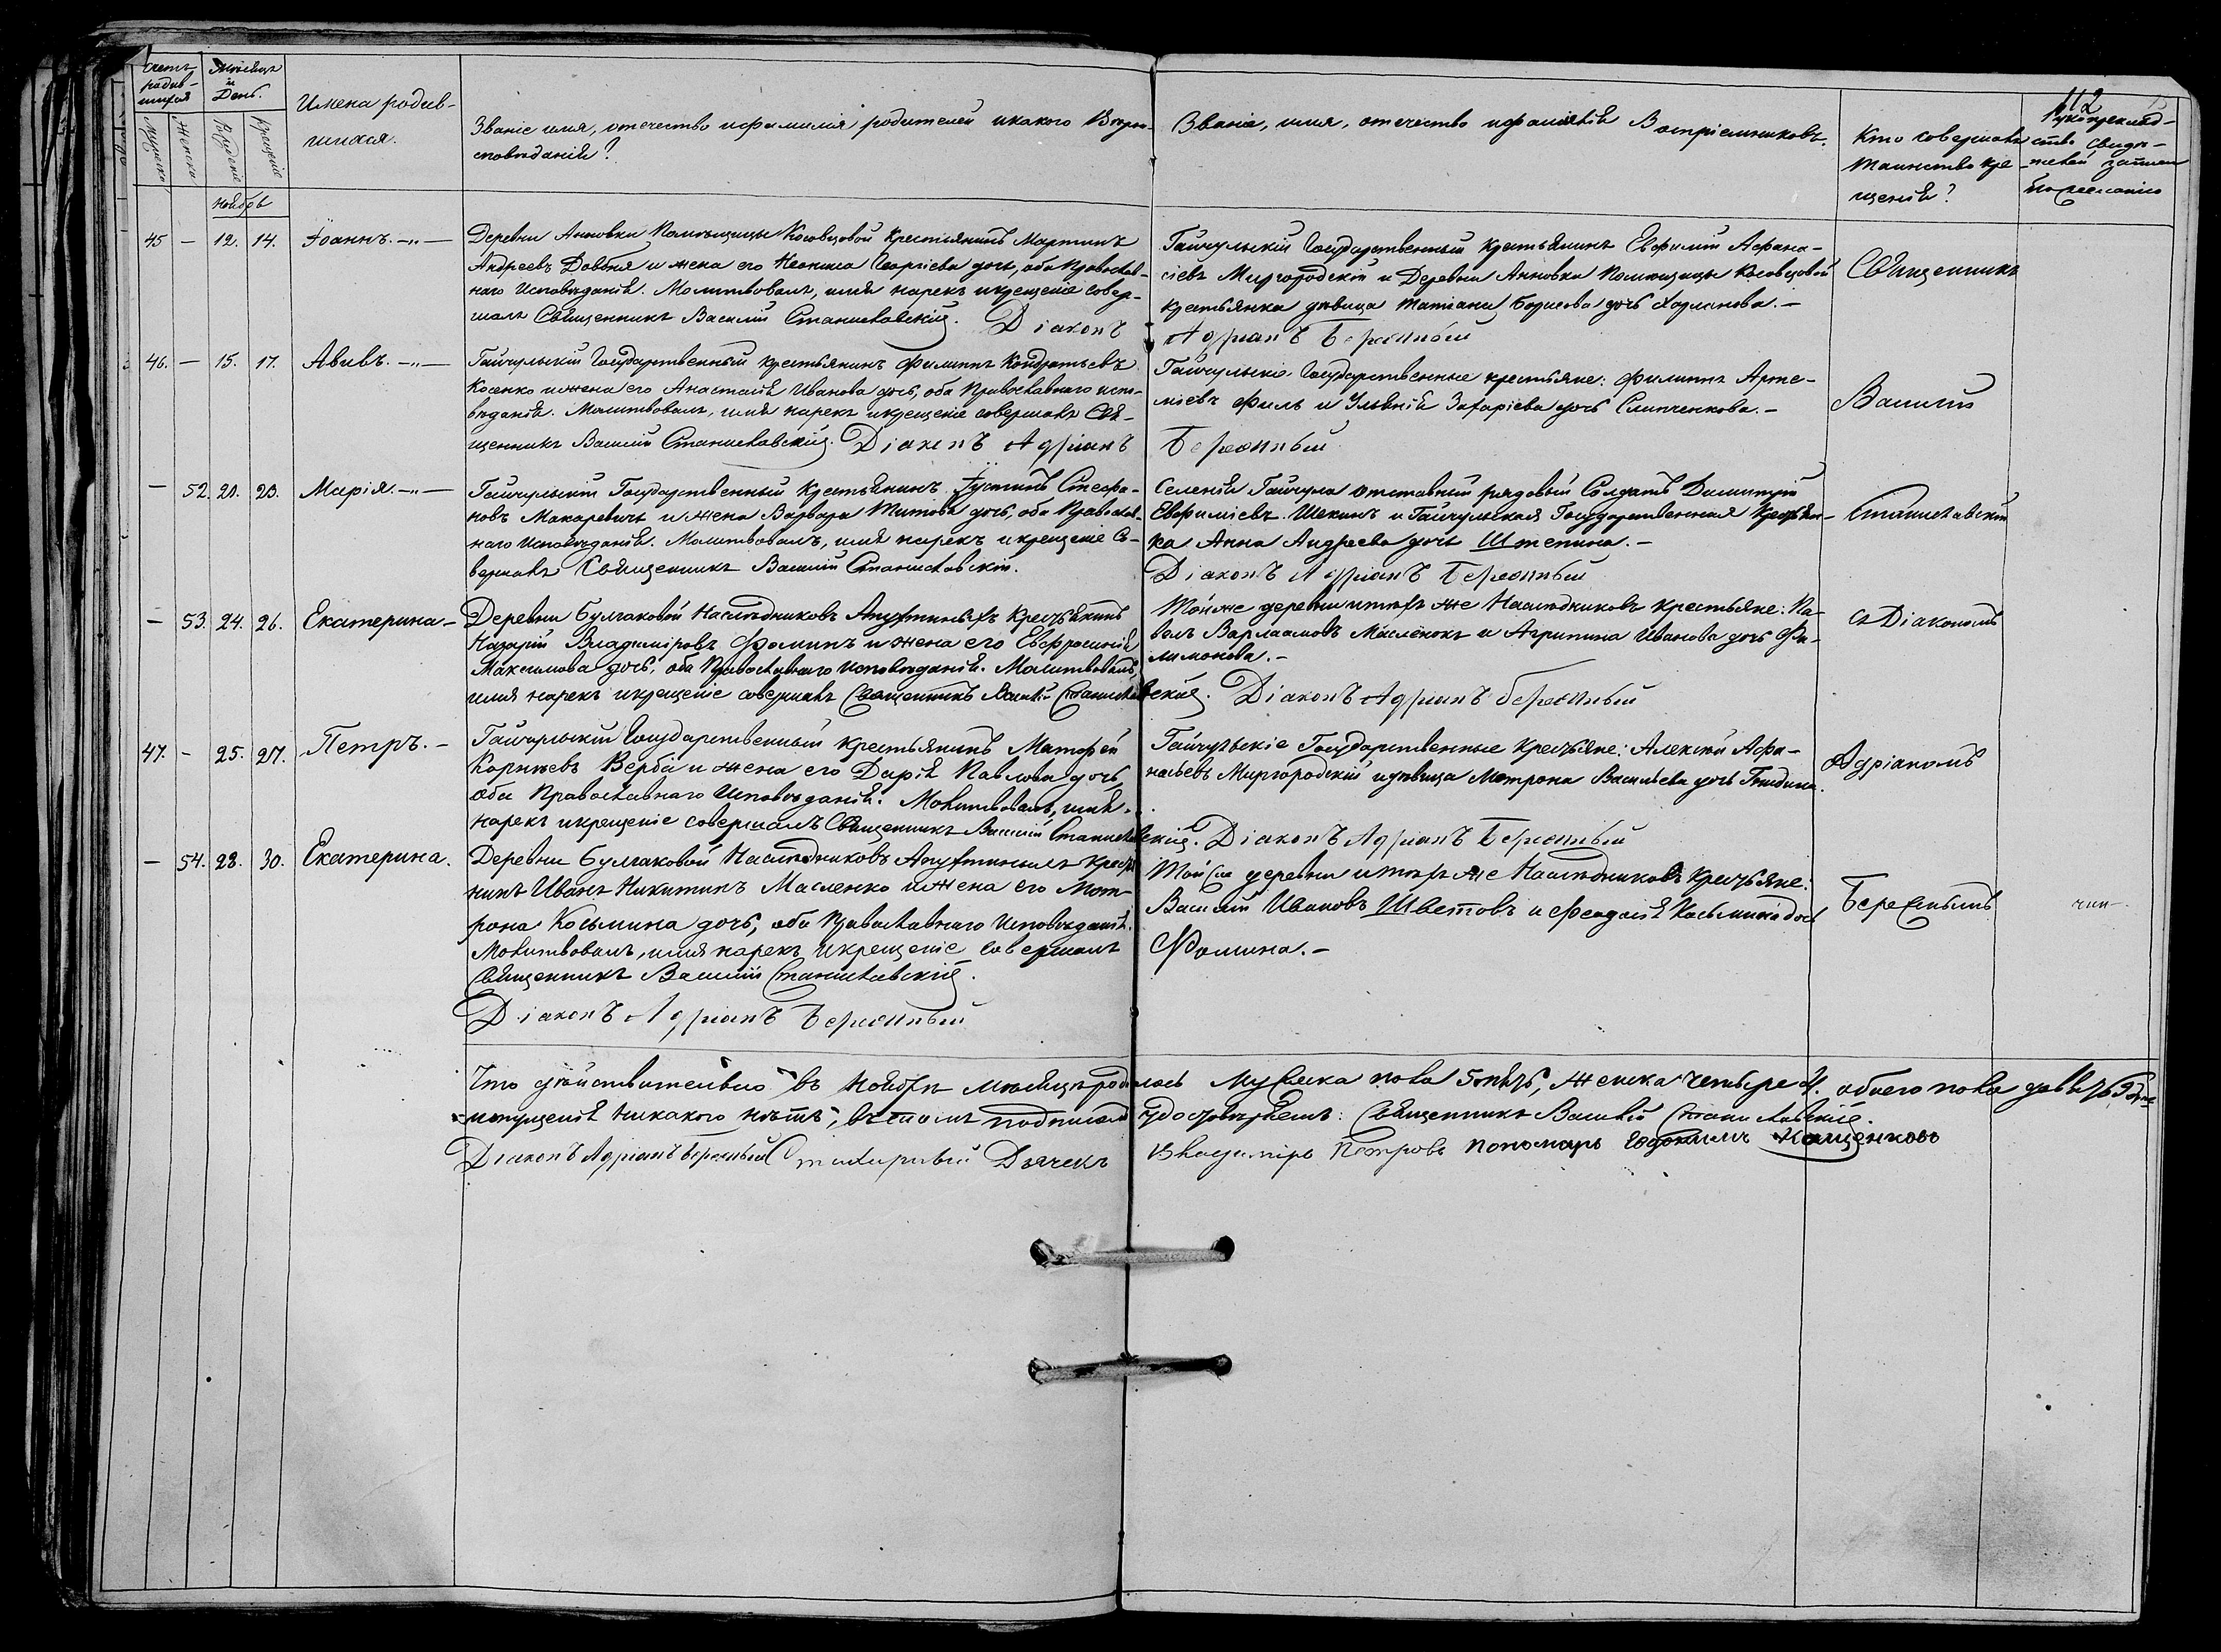 112
Счетъ родив-
шихся
Мужеска
Женска
Мѣсяцъ
и
День.
Рожденіе
Крещеніе
Имена родив-
шихся.
Званіе имя, отечество и фамилія родителей и какого Вѣроис-
повѣданія?
Званіе, имя, отечество и фамилія Воспріемниковъ.
Кто совершалъ
таинство кре
щенія?
Рукоприклад-
ство свидѣ-
телей записи
по желанію
Ноябрь
45 — 12. 14. Іоаннъ. —„—
Деревни Анновки Помѣщицы Косовцовой Крестьянинъ Мартинъ
Андреевъ Довбня и жена его Неонила Георгіева дочь, оба Православ-
наго Исповѣданія. Молитвовалъ, имя нарекъ и крещеніе совер-
шалъ Священникъ Василій Станиславскій. Діаконъ
Гайчульскій Государственный крестьянинъ Евфимій Афана-
сіевъ Миргородскій и Деревни Анновки Помѣщицы Косовцовой
крестьянка дѣвица Татіана Борисова дочь
Адріанъ Бережный
Священникъ
46. — 15. 17. Авивъ. —„—
Гайчульскій Государственный крестьянинъ Филиппъ Кондратьевъ
Косенко и жена его Анастасія Иванова дочь, оба Православнаго испо-
вѣданія. Молитвовалъ, имя нарекъ и крещеніе совершалъ Свя-
щенникъ Василій Станиславскій. Діаконъ Адріанъ
Гайчульскіе Государственные крестьяне: Филиппъ Арте-
міевъ Филь и Ульянія Захаріева дочь Слипченкова. —
Бережный
Василій
— 52. 21. 23. Марія. —„—
Гайчульскій Государственный Крестьянинъ Іустинъ Стефа-
новъ Макаревичъ и жена Варвара Титова дочь, оба Православ-
наго Исповѣданія. Молитвовалъ, имя нарекъ и крещеніе Со-
вершалъ Священникъ Василій Станиславскій.
Селенія Гайчула отставный рядовый Солдатъ Димитрій
Евфиміевъ Шекинъ и Гайчульская Государственная Крестьян-
ка Анна Андреева дочь Штепина. —
Діаконъ Адріанъ Бережный
Станиславскій
— 53. 24. 26. Екатерина —
Деревни Булгаковой Наслѣдниковъ Апухтиныхъ Крестьянинъ
Назарій Владиміровъ Фоминъ и жена его Евфросинія
Максимова дочь, оба Православнаго исповѣданія. Молитвовалъ,
имя нарекъ и крещеніе совершалъ Священникъ Василій Станиславскій. Діаконъ Адріанъ Бережный
Той же деревни и тѣхъ же Наслѣдниковъ крестьяне: Па-
велъ Варлаамовъ Масленокъ и Агрипина Иванова дочь Фи-
лимонова. —
съ Діакономъ
47. — 25. 27. Петръ. —
Гайчульскій Государственный крестьянинъ Матфей
Корнѣевъ Верба и жена его Дарія Павлова дочь,
оба Православнаго Исповѣданія. Молитвовалъ, имя
нарекъ и крещеніе совершалъ Священникъ Василій Станиславскій. Діаконъ Адріанъ Бережный
Гайчульскіе Государственные Крестьяне: Алексій Афа-
насьевъ Миргородскій и дѣвица Матрона Васильева дочь
Адріаномъ
— 54. 28. 30. Екатерина.
Деревни Булгаковой Наслѣдниковъ Апухтиныхъ Крестья
нинъ Иванъ Никитинъ Масленко и жена его Мат-
рона Косьмина дочь, оба Православнаго Исповѣданія.
Молитвовалъ, имя нарекъ и крещеніе совершалъ
Священникъ Василій Станиславскій.
Діаконъ Адріанъ Бережный
Той же деревни и тѣхъ же Наслѣдниковъ Крестьяне:
Василій Ивановъ Шветовъ и Феодосія Касьмина дочь
Фомина. —
Бережнымъ
Что дѣйствительно въ Ноябрѣ мѣсяцѣ родилось Мужеска пола 5 пять, Женска четыре 4. обоего пола девять 9
упущенія никакого нѣтъ, въ томъ подписомъ удостовѣряемъ: Священникъ Василій Станиславскій.
Діаконъ Адріанъ Бережный Стихарный Дьячекъ Владиміръ Петровъ Пономарь Евдокимъ